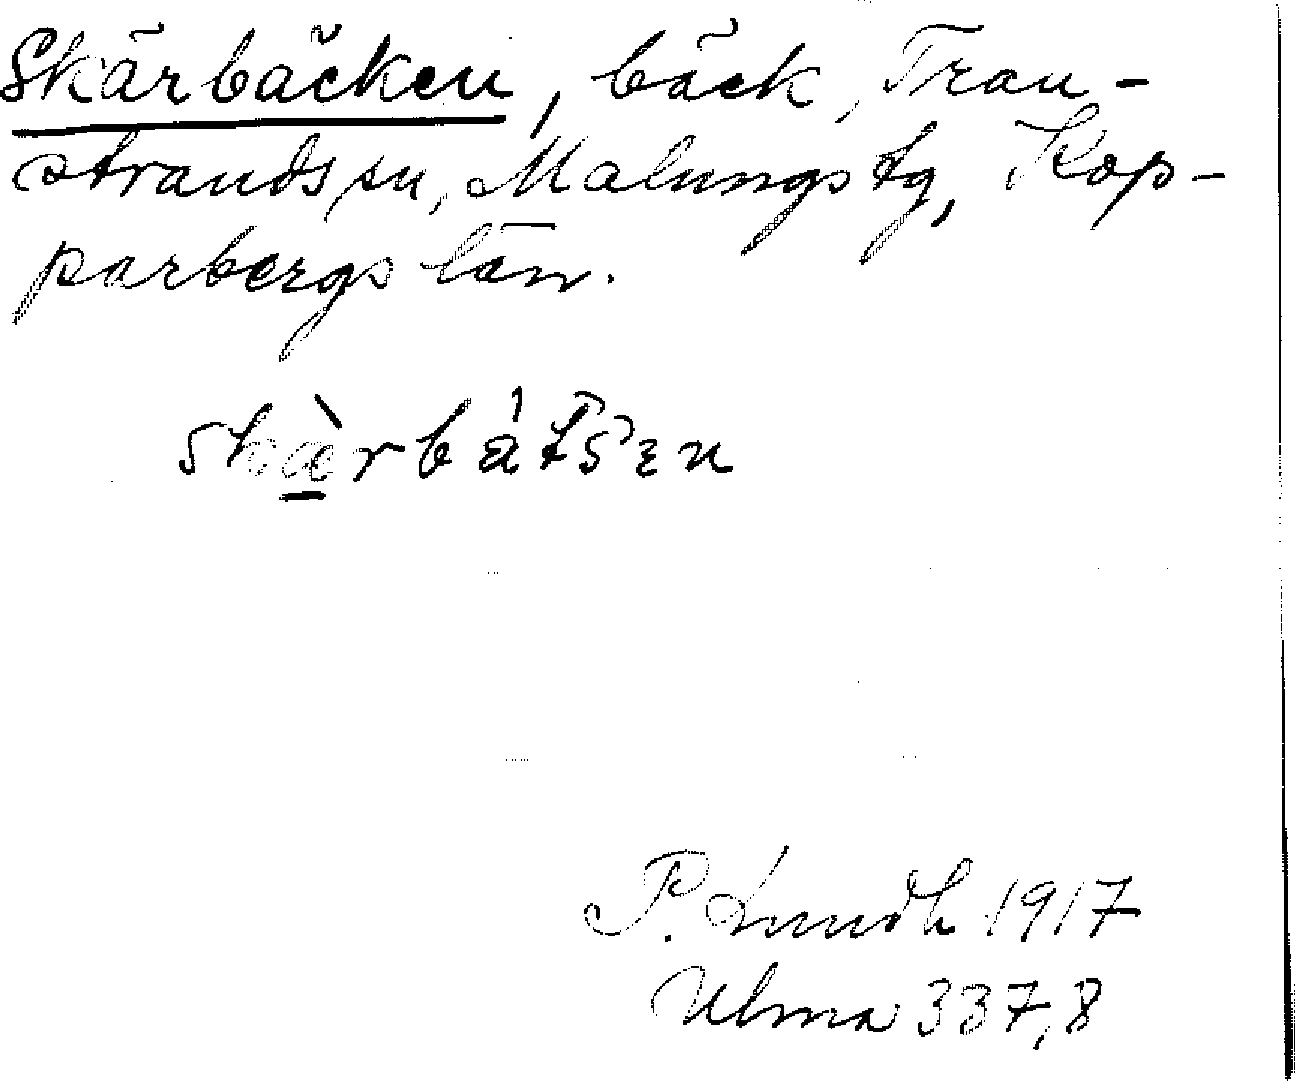 Skärbäcken, bäck, Tran-
strands sn, Malungs tg, Kop-
parbergs län.
skæ̀rbátšen
P. Lundh 1917
Ulma 337,8